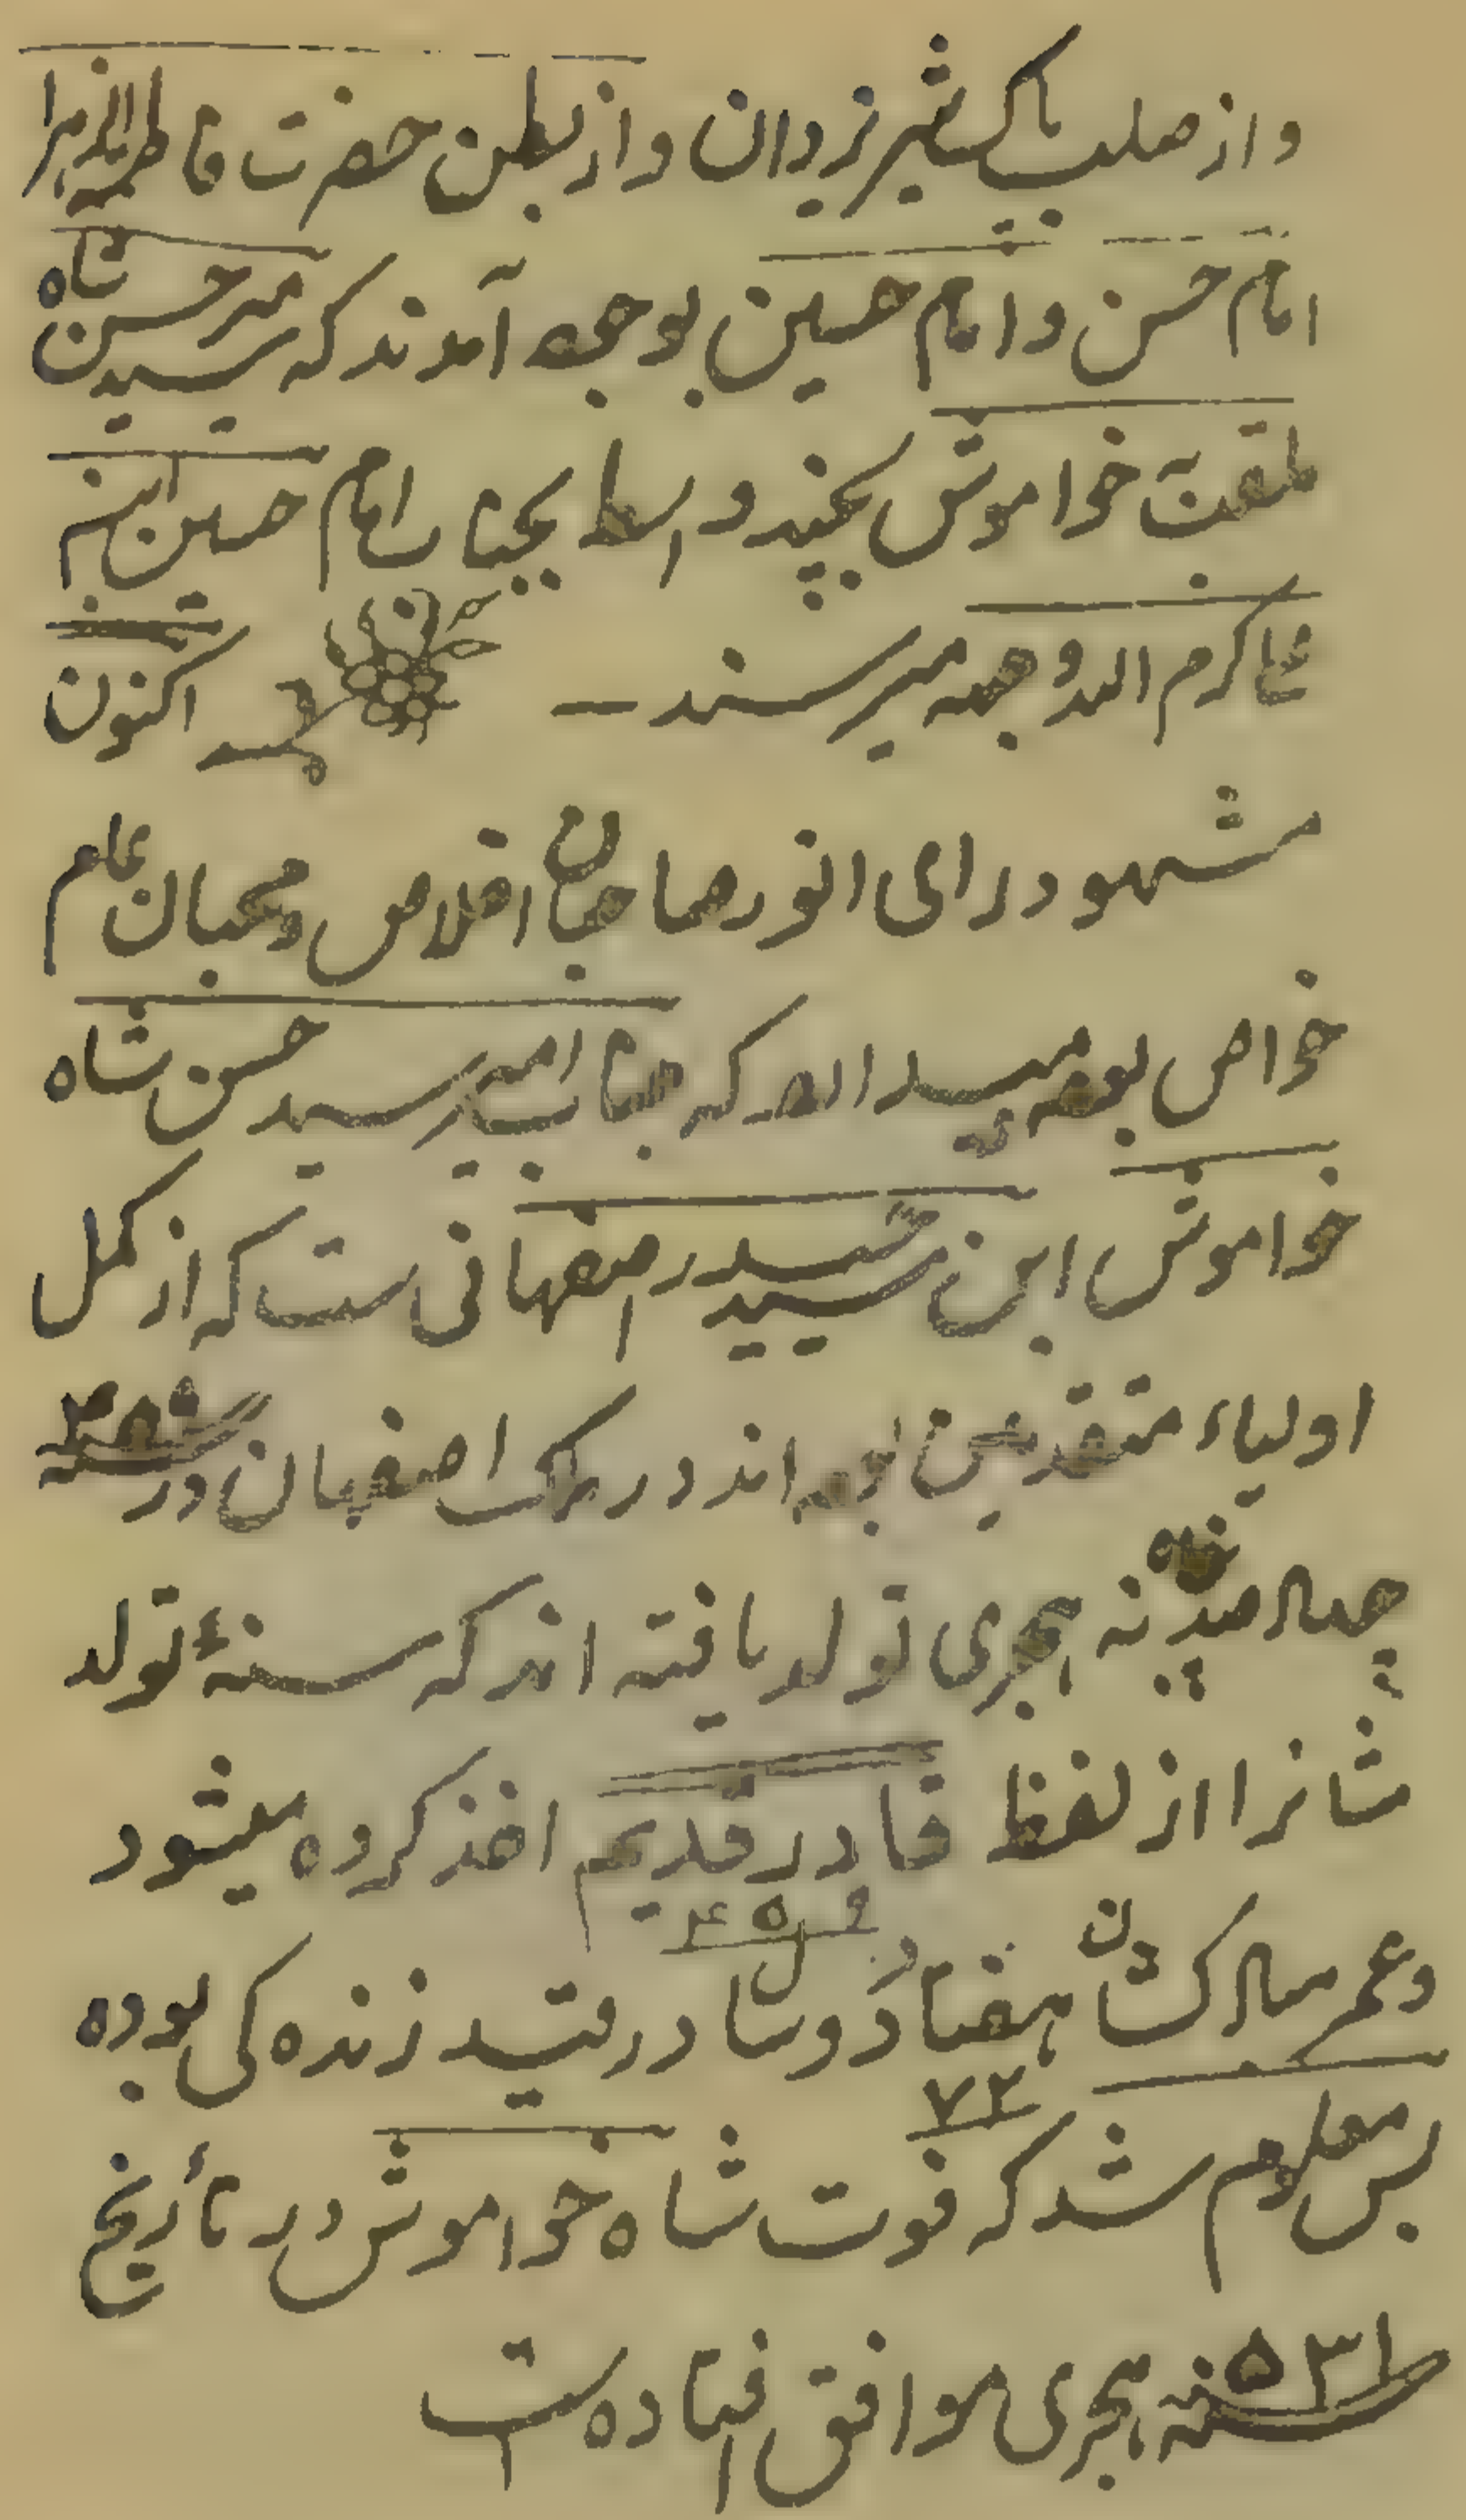 و از صلب پاک شیر یزدان و از بطن حضرت فاطمه الزهرا
امام حسن و امام حسین بوجود آمدند که سید میر حسن شاه
ملقب خواموش بچند واسطه بجناب امام حسین ابن
علی کرم الله وجهه میرسند اکنون
مشهود رای انور صاحبان اخلاص و محبان تمام
خواص بوده میداند که جناب امیر سید حسن شاه
خواموش ابن سید حیدر اصفهانی ست که از کمل
اولیاء متقدمین بوده اند در ملک اصفهان در سنه
چهار صد پنجاه نه هجری تولد یافته اند که سنهٔ تولد
شانرا از لفظ قادر قدیم اخذ کرده میشود
۴۵۹
و عمر مبارک شان هفتاد و دو سال در قید زنده کی بوده
۷۲
پس معلوم شد که فوت شاه خواموش در تأریخ
سنه ۵۳۱ هجری موافق افتاده است